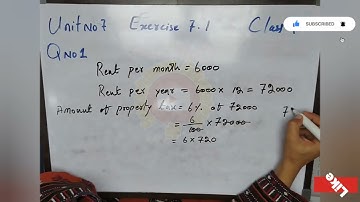 Unit No 7 Exercise 7.1 Class
Q No 1
Rent per month = 6000
Rent per year = 6000 x 12 = 72000
Amount of property tax = 6% of 72000
= 6/100 x 72000
= 6 x 720
7
Like